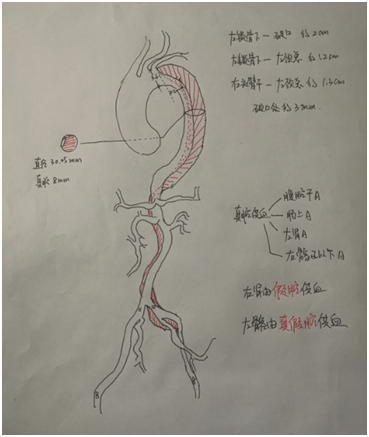 左锁骨下 — 破口 约 2cm
左锁骨下 — 左颈总 约 1.2cm
左颈总 约 1.3cm
破口
直径 30.45mm
真腔 8mm
真腔供血
腹腔干A
肠上A
左肾A
左髂 以下A
左肾由假腔供血
左髂由真假腔供血